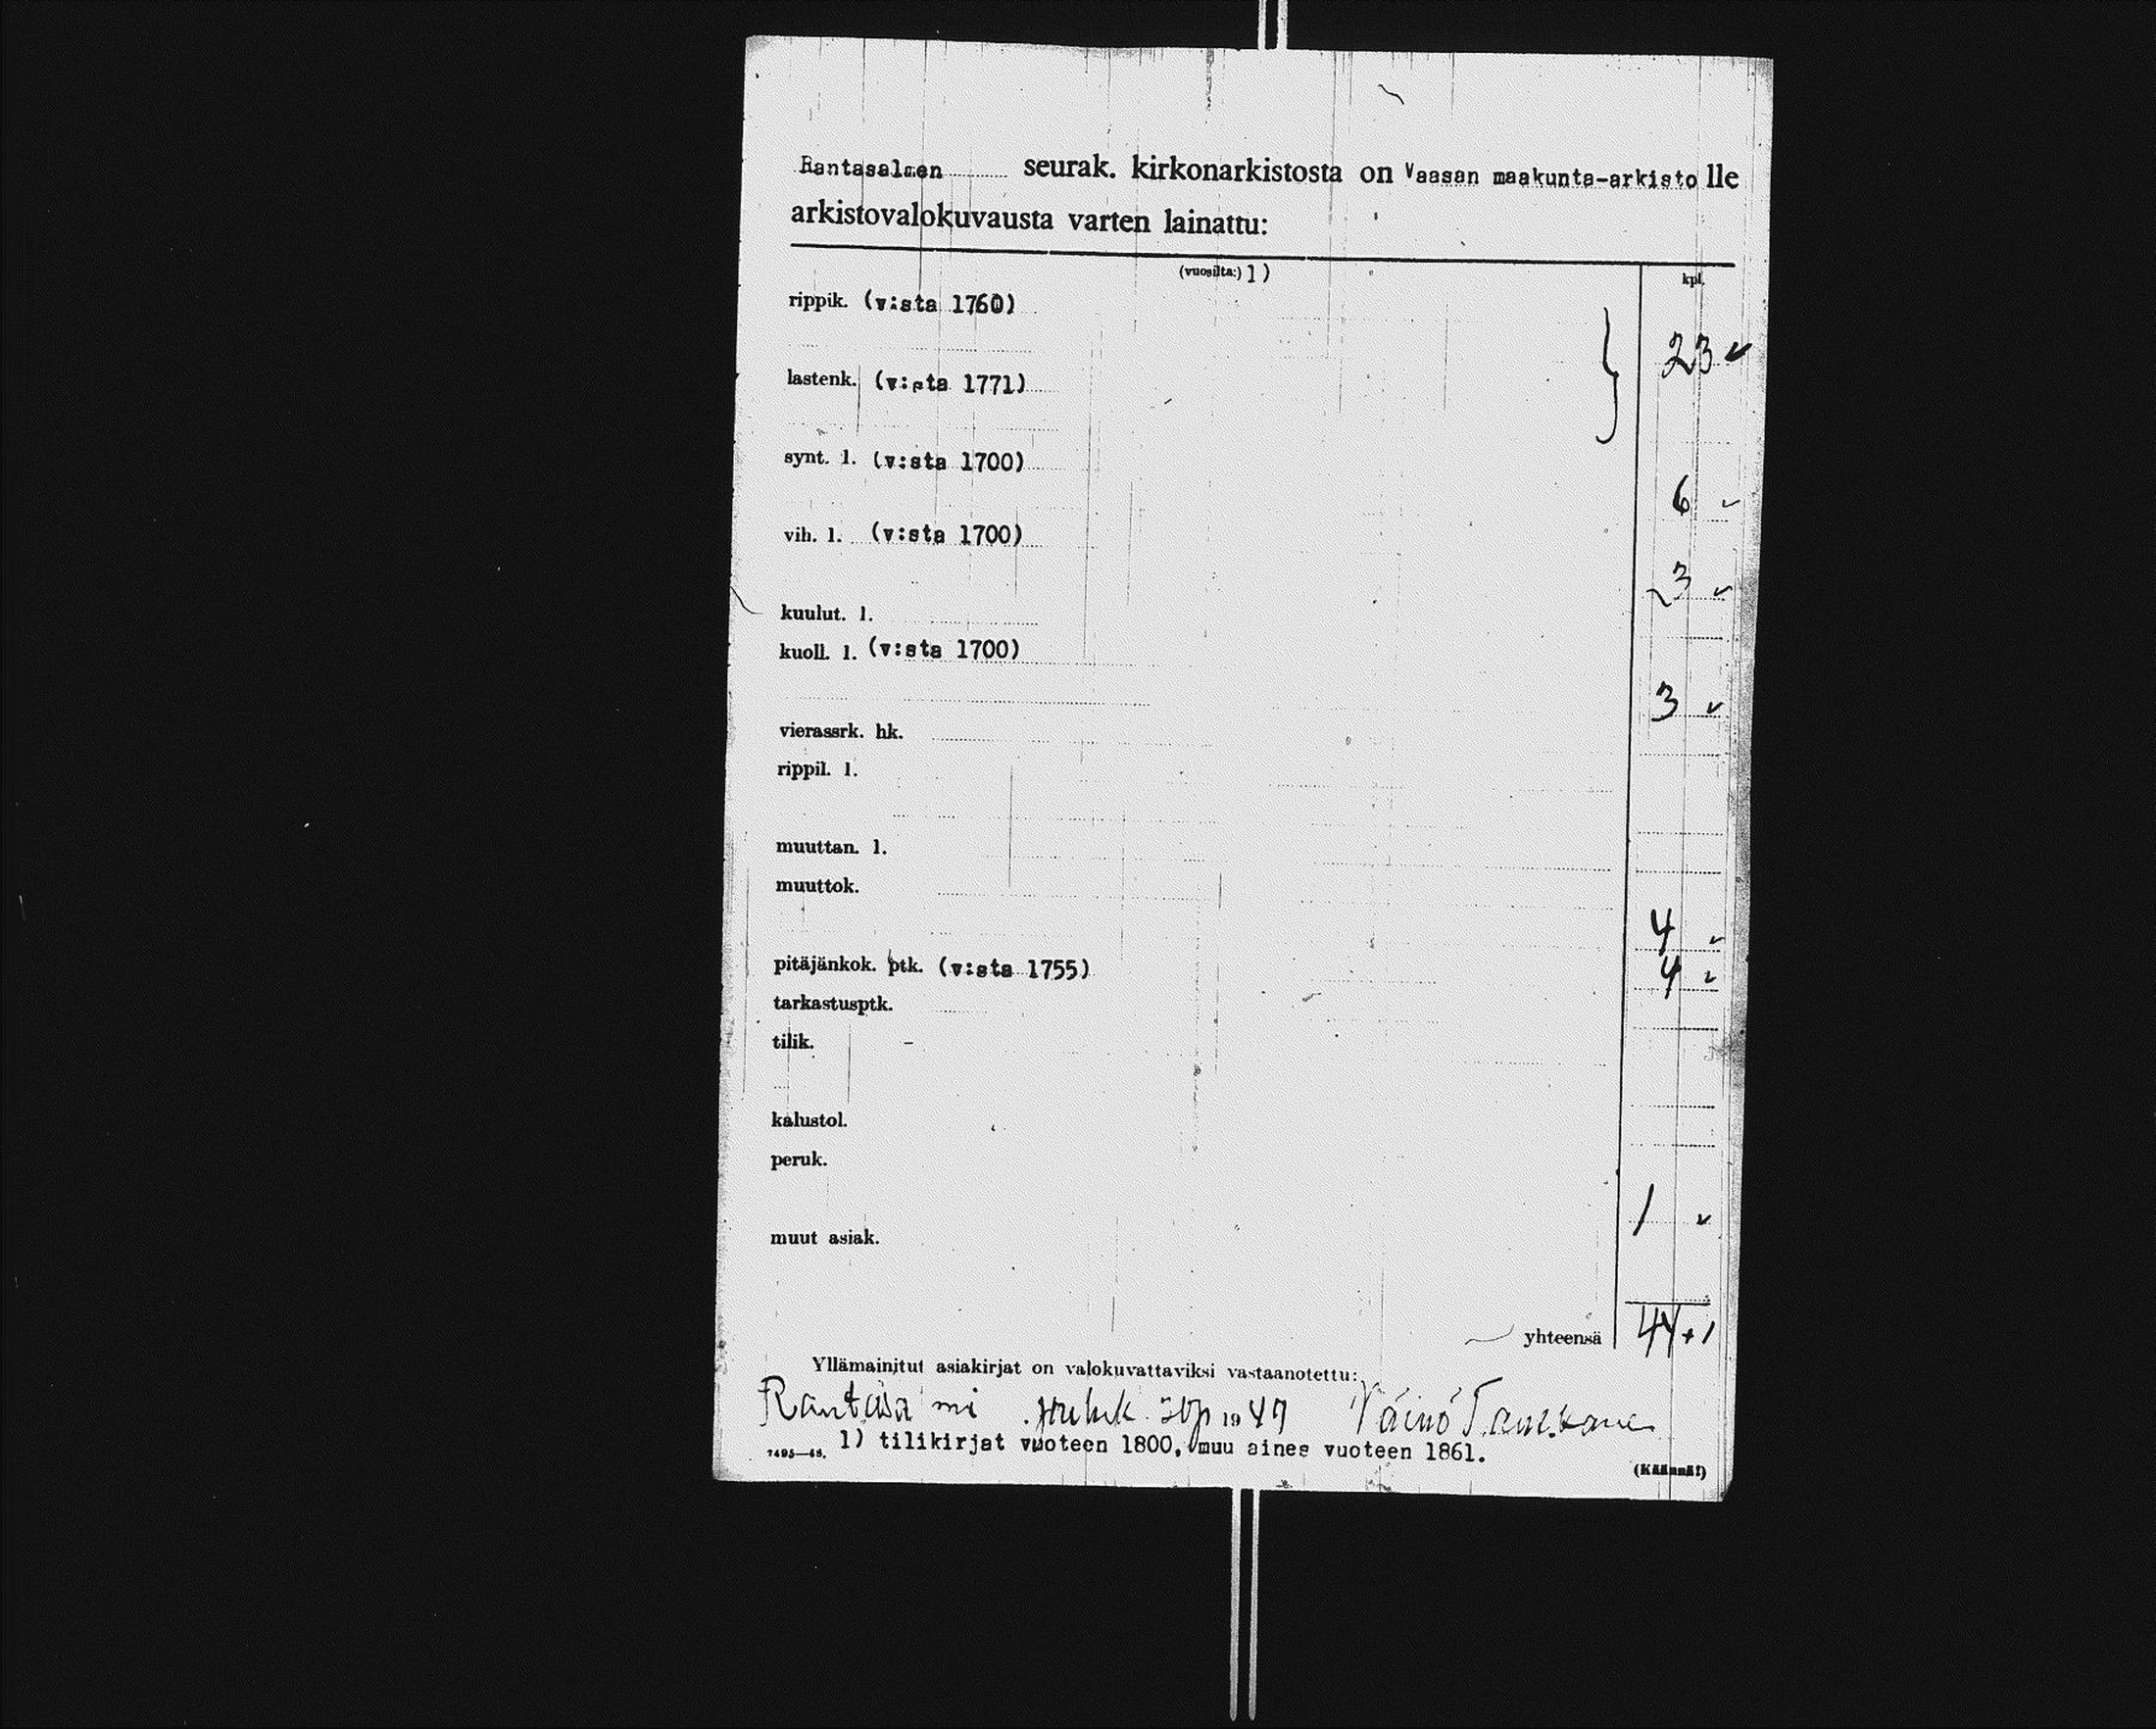 Rantasalmen seurak. kirkonarkistosta on Vaasan maakunta-arkisto lle
arkistovalokuvausta varten lainattu:
(vuosilta:) 1)
kpl.
rippik. (v:sta 1760)
23
lastenk. (v:sta 1771)
synt. l. (v:sta 1700)
6
vih. l. (v:sta 1700)
3
kuulut. l.
kuoll. l. (v:sta 1700)
3
vierassrk. hk.
rippil. l.
muuttan. l.
muuttok.
4
pitäjänkok. ptk. (v:sta 1755) 4
tarkastusptk.
tilik. -
kalustol.
peruk.
1
muut asiak.
yhteensä 44+1
Yllämainitut asiakirjat on valokuvattaviksi vastaanotettu:
19 Väinö
1) tilikirjat vuoteen 1800, muu aines vuoteen 1861.
(Käännä!)